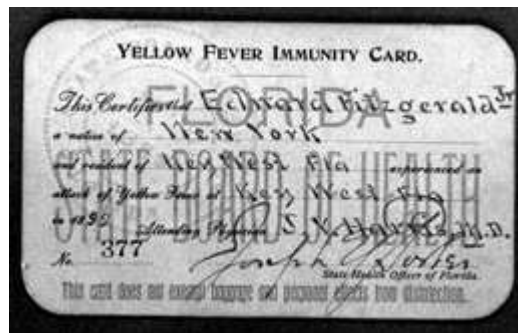 YELLOW FEVER IMMUNITY CARD.
This Certifies that Edward Fitzgerald Jr
a native of New York
and resident of Key West Fla experienced an
attack of Yellow Fever at Key West Fla
in 189 Attending Physician J. V. Harris, M.D.
No. 377 Joseph Y Porter
State Health Officer of Florida.
This card does not exempt baggage and personal effects from disinfection.
FLORIDA
STATE BOARD OF HEALTH